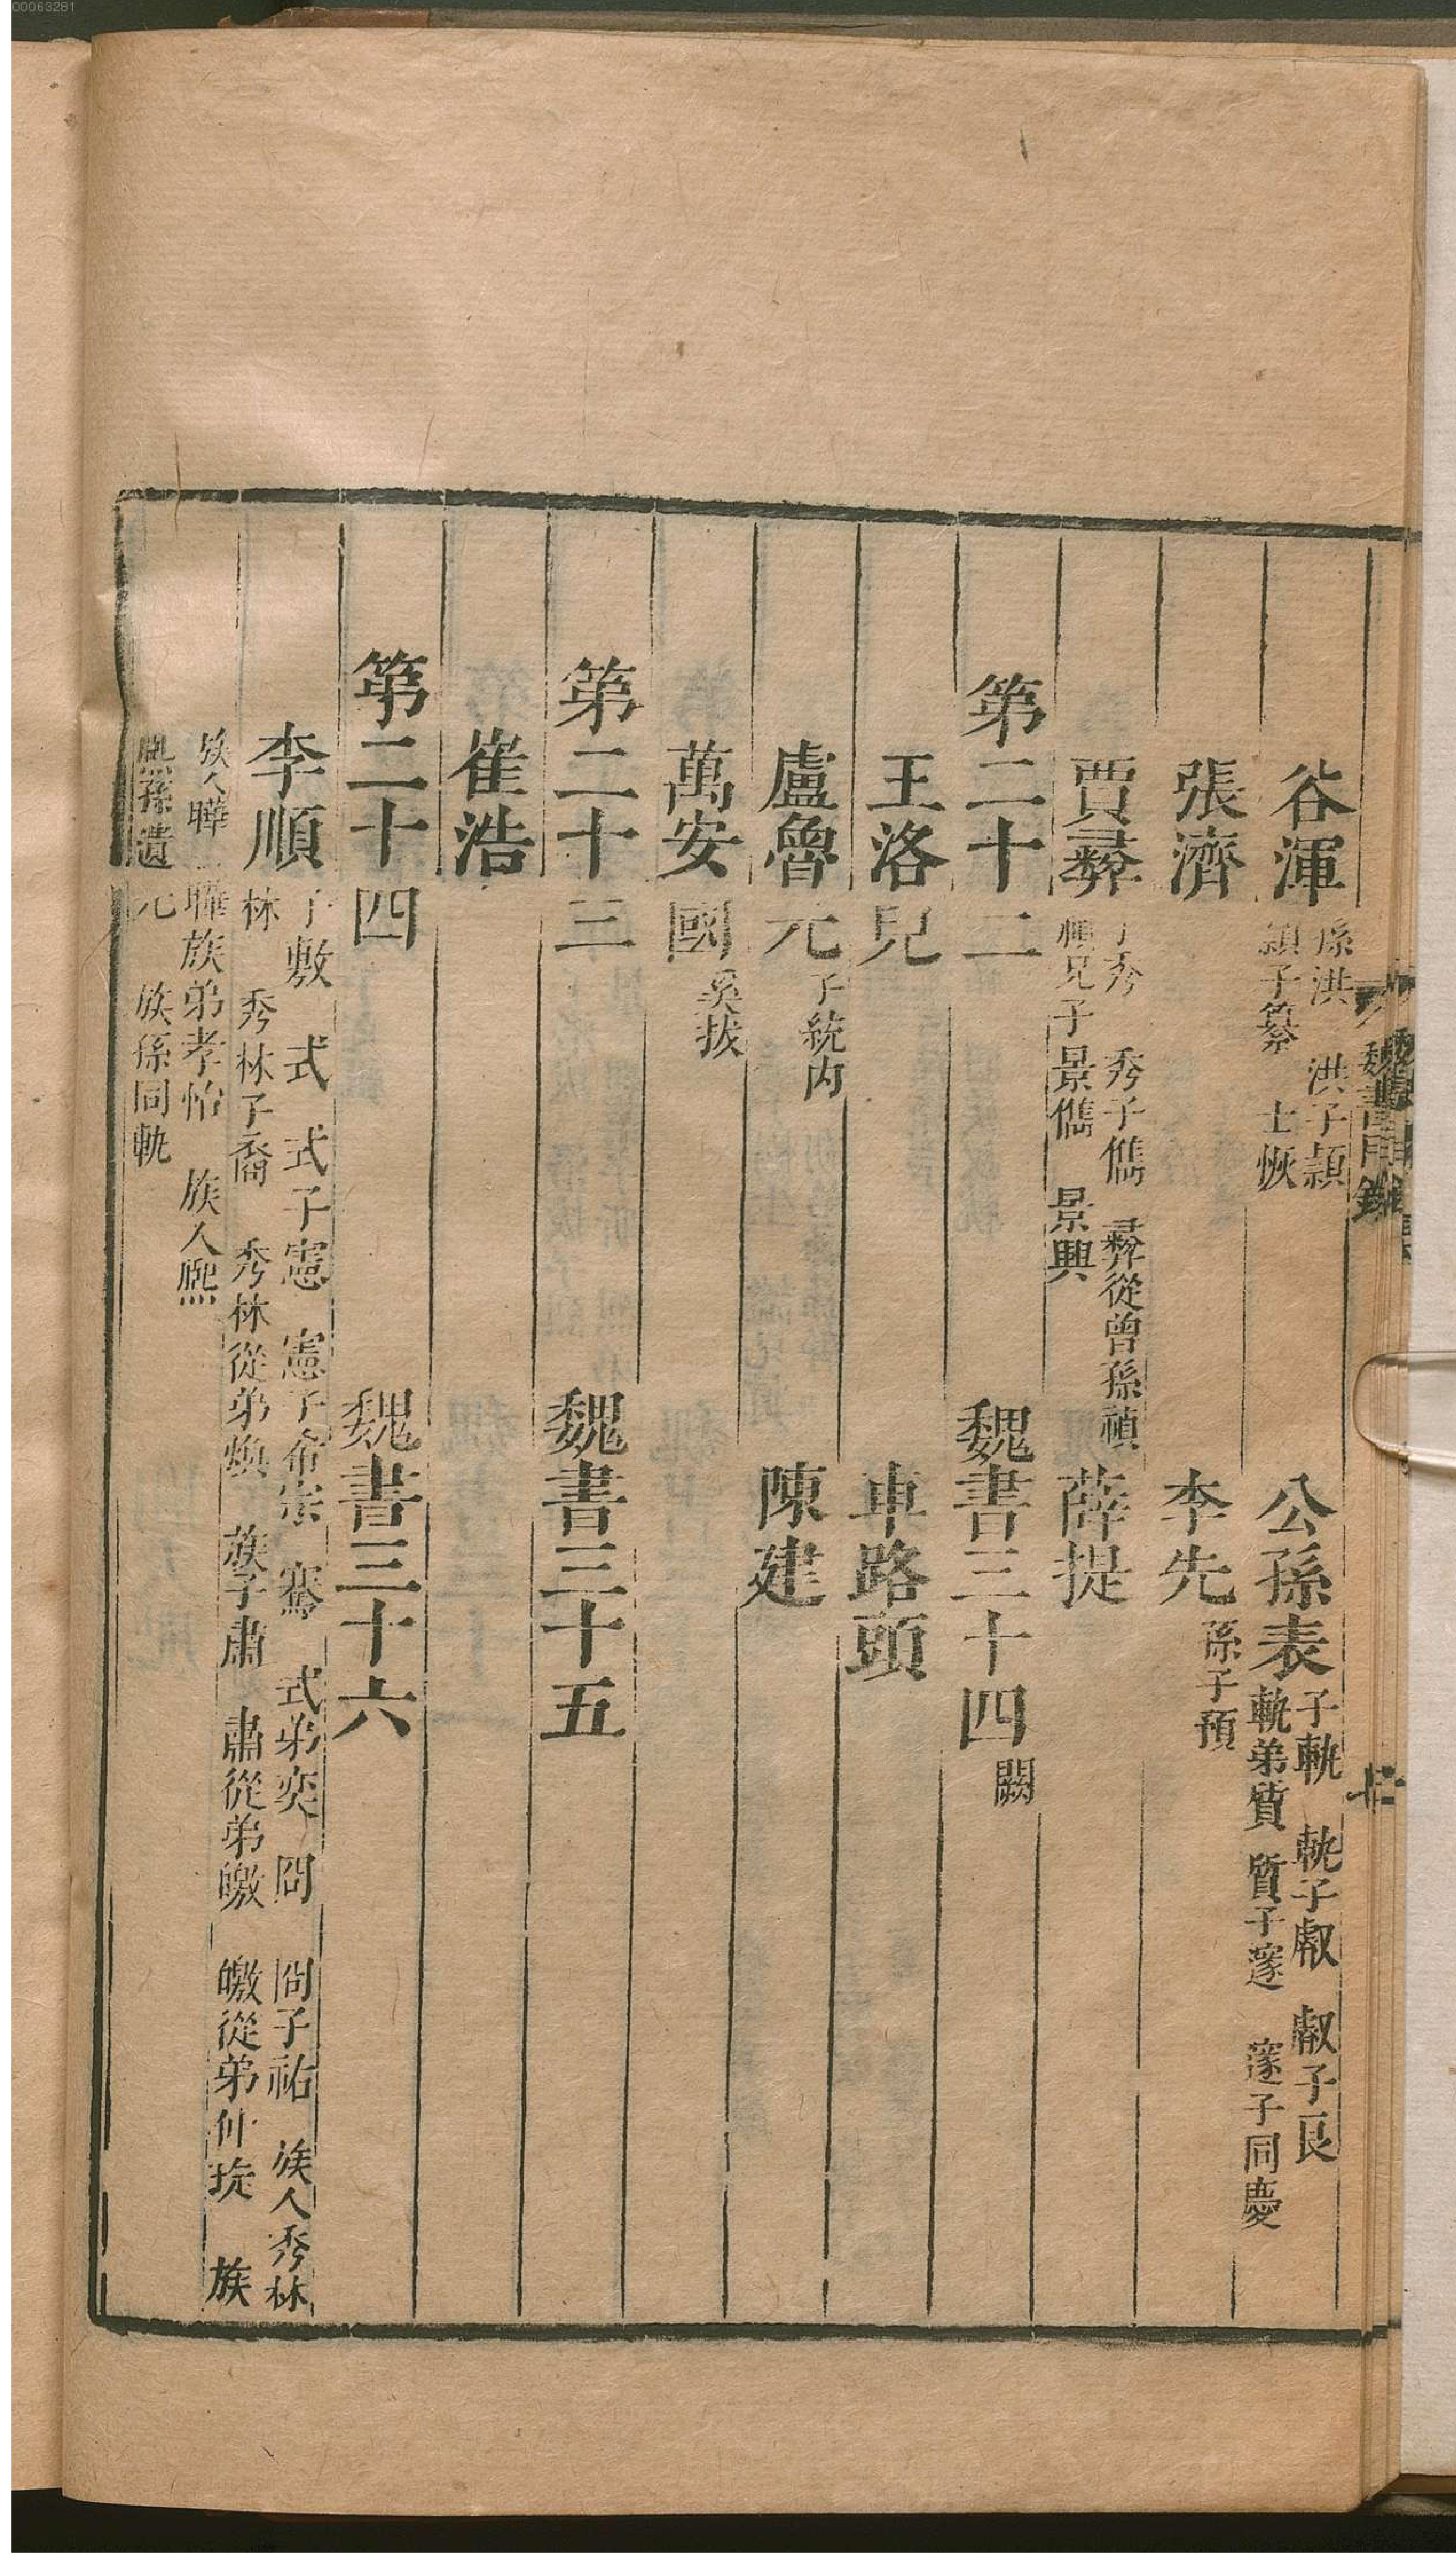 谷渾 孫洪 洪子穎 穎子纂 士恢 公孫表 子軌 軌子叡 叡子良 軌弟質 質子邃 邃子同慶
張濟 李先 孫子預
賈彝 子秀 秀子儁 彝從曾孫禎 禎兄子景儁 景興 薛提
第二十二 魏書三十四 闕
王洛兒 車路頭
盧魯元 子統內 陳建
萬安國 奚拔
第二十三 魏書三十五
崔浩
第二十四 魏書三十六
李順 子敷 式 式子憲 憲子希宗 騫 式弟奕 冏 冏子祐 族人秀林 秀林子裔 秀林從弟煥 族子肅 肅從弟皦 皦從弟仲琁 族
族人曄 曄族弟孝怡 族人熙
熙孫遺元 族孫同軌
魏書目錄
00063281